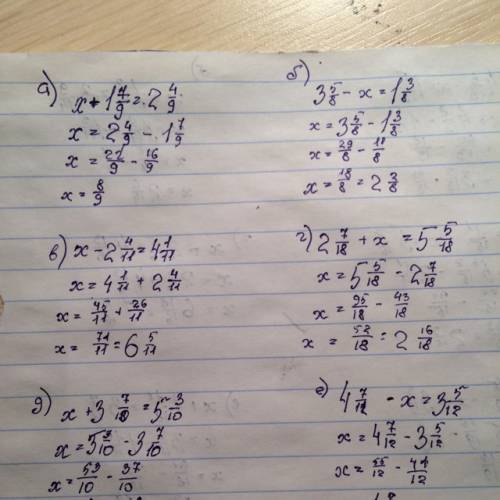 а) x + 1 7/9 = 2 4/9
x = 2 4/9 - 1 7/9
x = 22/9 - 16/9
x = 8/9
б)
3 5/8 - x = 1 3/8
x = 3 5/8 - 1 3/8
x = 29/8 - 18/8
x = 18/8 = 2 3/8
в) x - 2 4/11 = 4 1/11
x = 4 1/11 + 2 4/11
x = 45/11 + 26/11
x = 71/11 = 6 5/11
г) 2 7/18 + x = 5 5/18
x = 5 5/18 - 2 7/18
x = 95/18 - 43/18
x = 52/18 = 2 16/18
д) x + 3 7/10 = 5 3/10
x = 5 3/10 - 3 7/10
x = 53/10 - 37/10
е) 4 7/12 - x = 3 5/12
x = 4 7/12 - 3 5/12
x = 55/12 - 41/12